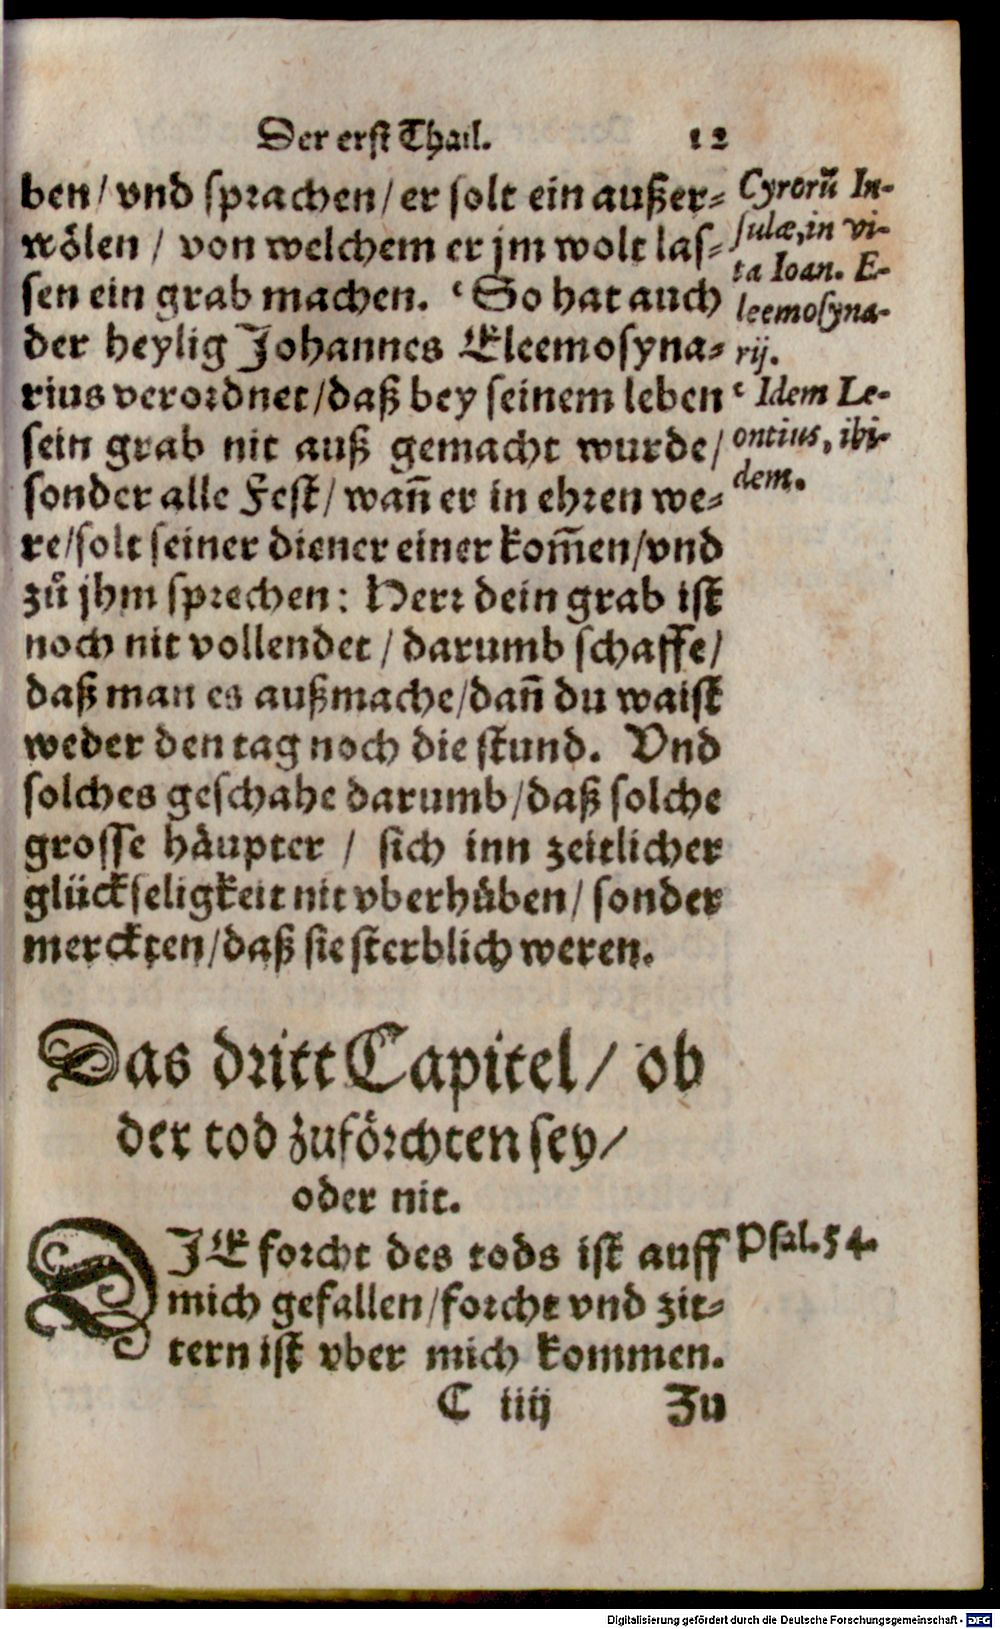 Der erst Thail. 12
ben/ vnd sprachen/ er solt ein außer-
wölen / von welchem er jm wolt las-
sen ein grab machen. ᶜ So hat auch
der heylig Johannes Eleemosyna-
rius verordnet/daß bey seinem leben
sein grab nit auß gemacht wurde/
sonder alle Fest/ wañ er in ehren we-
re/solt seiner diener einer kom̃en/vnd
zů jhm sprechen: Herr dein grab ist
noch nit vollendet / darumb schaffe/
daß man es außmache/dañ du waist
weder den tag noch die stund. Vnd
solches geschahe darumb/daß solche
grosse häupter / sich inn zeitlicher
glückseligkeit nit vberhüben/ sonder
merckten/daß sie sterblich weren.
Cyrorũ In-
sulæ,in vi-
ta Ioan. E-
leemosyna-
rij.
ᶜ Idem Le-
ontius, ibi-
dem.
Das dritt Capitel/ ob
der tod zuförchten sey/
oder nit.
DIE forcht des tods ist auff
mich gefallen/forcht vnd zit-
tern ist vber mich kommen.
Psal.54.
C iiij Zu
Digitalisierung gefördert durch die Deutsche Forschungsgemeinschaft - DFG